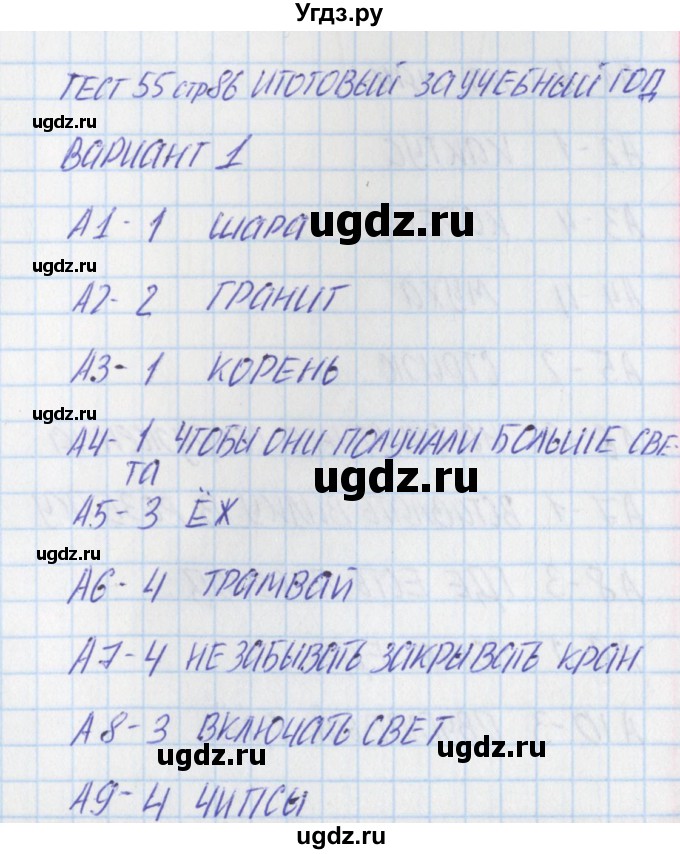 Угдз.ру
ТЕСТ 55 стр 86 ИТОГОВЫЙ ЗА УЧЕБНЫЙ ГОД
ugdz.ru
ВАРИАНТ 1
А1- 1 ШАРА
ugdz.ru
ugdz.ru
А2- 2 ГРАНИТ
А3- 1 КОРЕНЬ
ugdz.ru
А4- 1 ЧТОБЫ ОНИ ПОЛУЧАЛИ БОЛЬШЕ СВЕ-
ТА
ugdz.ru
А5- 3 ЁЖ
ugdz.ru
А6- 4 ТРАМВАЙ
А7- 4 НЕ ЗАБЫВАТЬ ЗАКРЫВАТЬ КРАН
А8- 3 ВКЛЮЧАТЬ СВЕТ
ugdz.ru
ugdz.ru
А9- 4 ЧИПСЫ
ugdz.ru